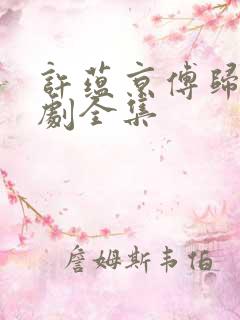 許蘊京傅歸
劇全集
詹姆斯韦伯